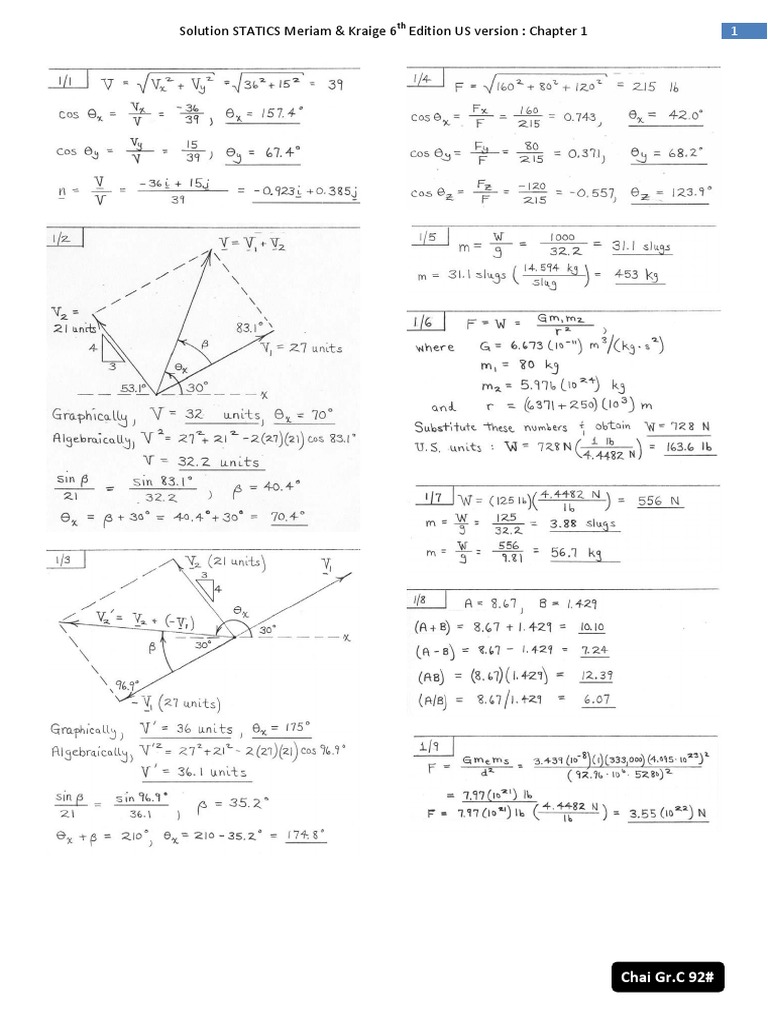 Solution STATICS Meriam & Kraige 6th Edition US version : Chapter 1
1
1/1 V = √Vx² + Vy² = √36² + 15² = 39
cos θx = Vx/V = -36/39, θx = 157.4°
cos θy = Vy/V = 15/39, θy = 67.4°
n = V/V = -36i + 15j/39 = -0.923i + 0.385j
1/2
V = V1 + V2
V2 =
21 units
4
3
83.1°
β
V1 = 27 units
θx
53.1°
30°
x
Graphically, V = 32 units, θx = 70°
Algebraically, V² = 27² + 21² - 2(27)(21) cos 83.1°
V = 32.2 units
sin β/21 = sin 83.1°/32.2, β = 40.4°
θx = β + 30° = 40.4° + 30° = 70.4°
1/3
V2 (21 units)
V1
3
4
V2' = V2 + (-V1)
θx
30°
x
β
30°
96.9°
- V1 (27 units)
Graphically, V' = 36 units, θx = 175°
Algebraically, V'² = 27² + 21² - 2(27)(21) cos 96.9°
V' = 36.1 units
sin β/21 = sin 96.9°/36.1, β = 35.2°
θx + β = 210°, θx = 210 - 35.2° = 174.8°
1/4 F = √160² + 80² + 120² = 215 lb
cos θx = Fx/F = 160/215 = 0.743, θx = 42.0°
cos θy = Fy/F = 80/215 = 0.371, θy = 68.2°
cos θz = Fz/F = -120/215 = -0.557, θz = 123.9°
1/5 m = W/g = 1000/32.2 = 31.1 slugs
m = 31.1 slugs (14.594 kg/slug) = 453 kg
1/6 F = W = Gm1m2/r²,
where G = 6.673(10⁻¹¹) m³/(kg·s²)
m1 = 80 kg
m2 = 5.976(10²⁴) kg
and r = (6371 + 250)(10³) m
Substitute these numbers & obtain W = 728 N
U.S. units : W = 728 N(1 lb/4.4482 N) = 163.6 lb
1/7 W = (125 lb)(4.4482 N/lb) = 556 N
m = W/g = 125/32.2 = 3.88 slugs
m = W/g = 556/9.81 = 56.7 kg
1/8 A = 8.67, B = 1.429
(A + B) = 8.67 + 1.429 = 10.10
(A - B) = 8.67 - 1.429 = 7.24
(AB) = (8.67)(1.429) = 12.39
(A/B) = 8.67/1.429 = 6.07
1/9
F = Gmems/d² = 3.439(10⁻⁸)(1)(333,000)(4.095·10²³)²/(92.96·10⁶·5280)²
= 7.97(10²¹) lb
F = 7.97(10²¹) lb (4.4482 N/lb) = 3.55(10²²) N
Chai Gr.C 92#